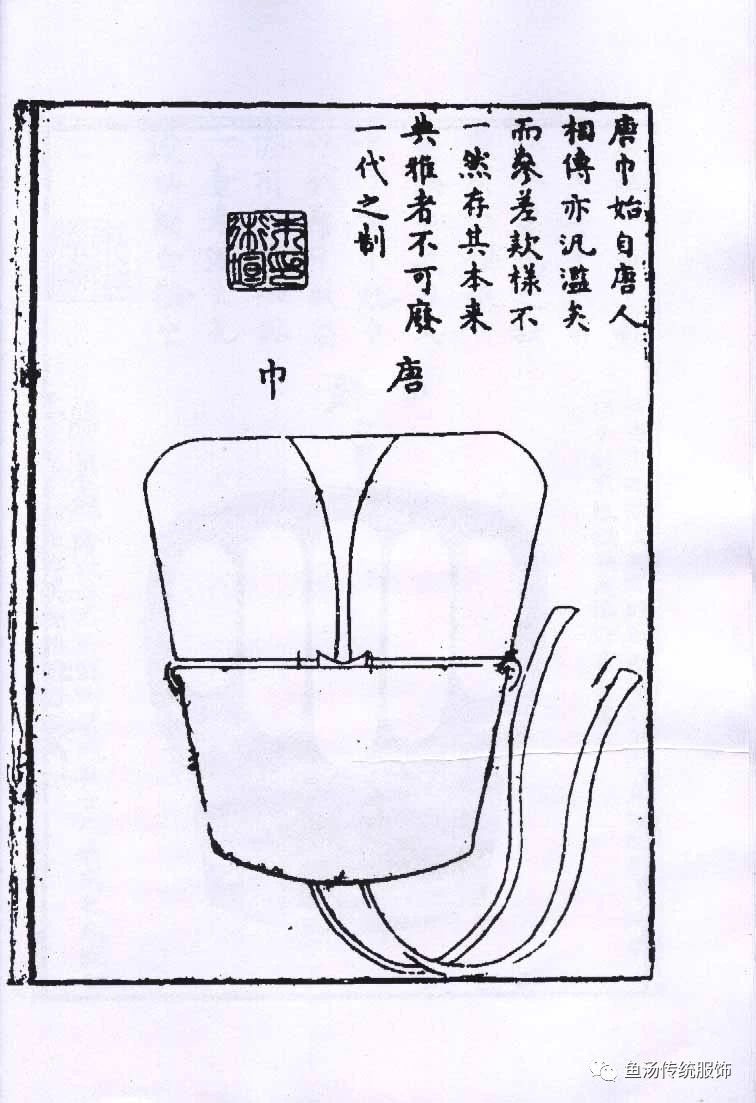 唐巾始自唐人
相傳亦汎濫矣
而參差款樣不
一然存其本来
典雅者不可廢
一代之制
唐巾
鱼汤传统服饰